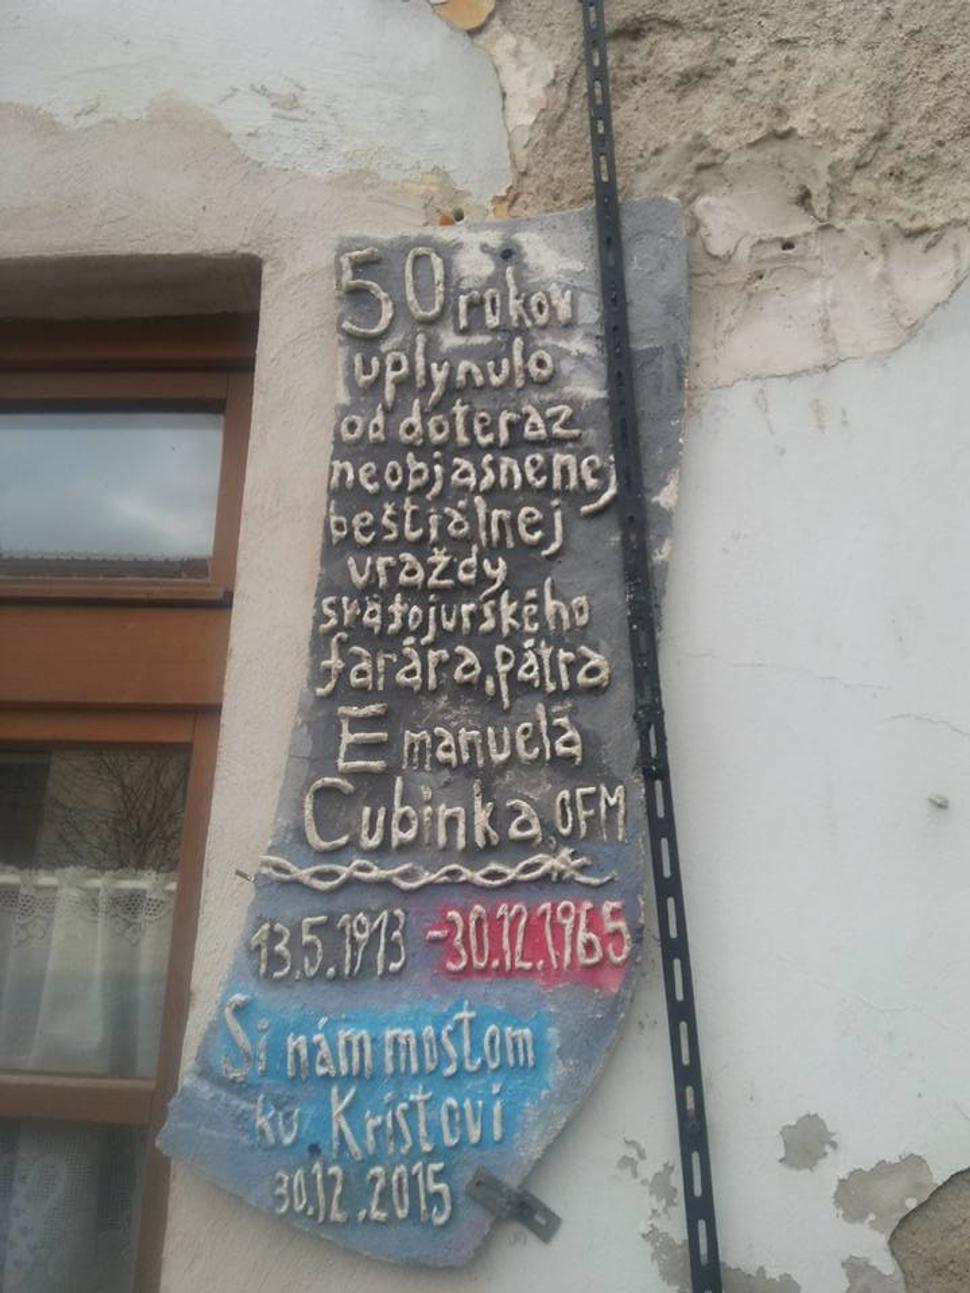 50 rokov
uplynulo
od doteraz
neobjasnenej
beštiálnej
vraždy
svätojurského
farára, pátra
Emanuela
Cubínka, OFM
13.5.1913 -30.12.1965
Si nám mostom
ku Kristovi
30.12.2015